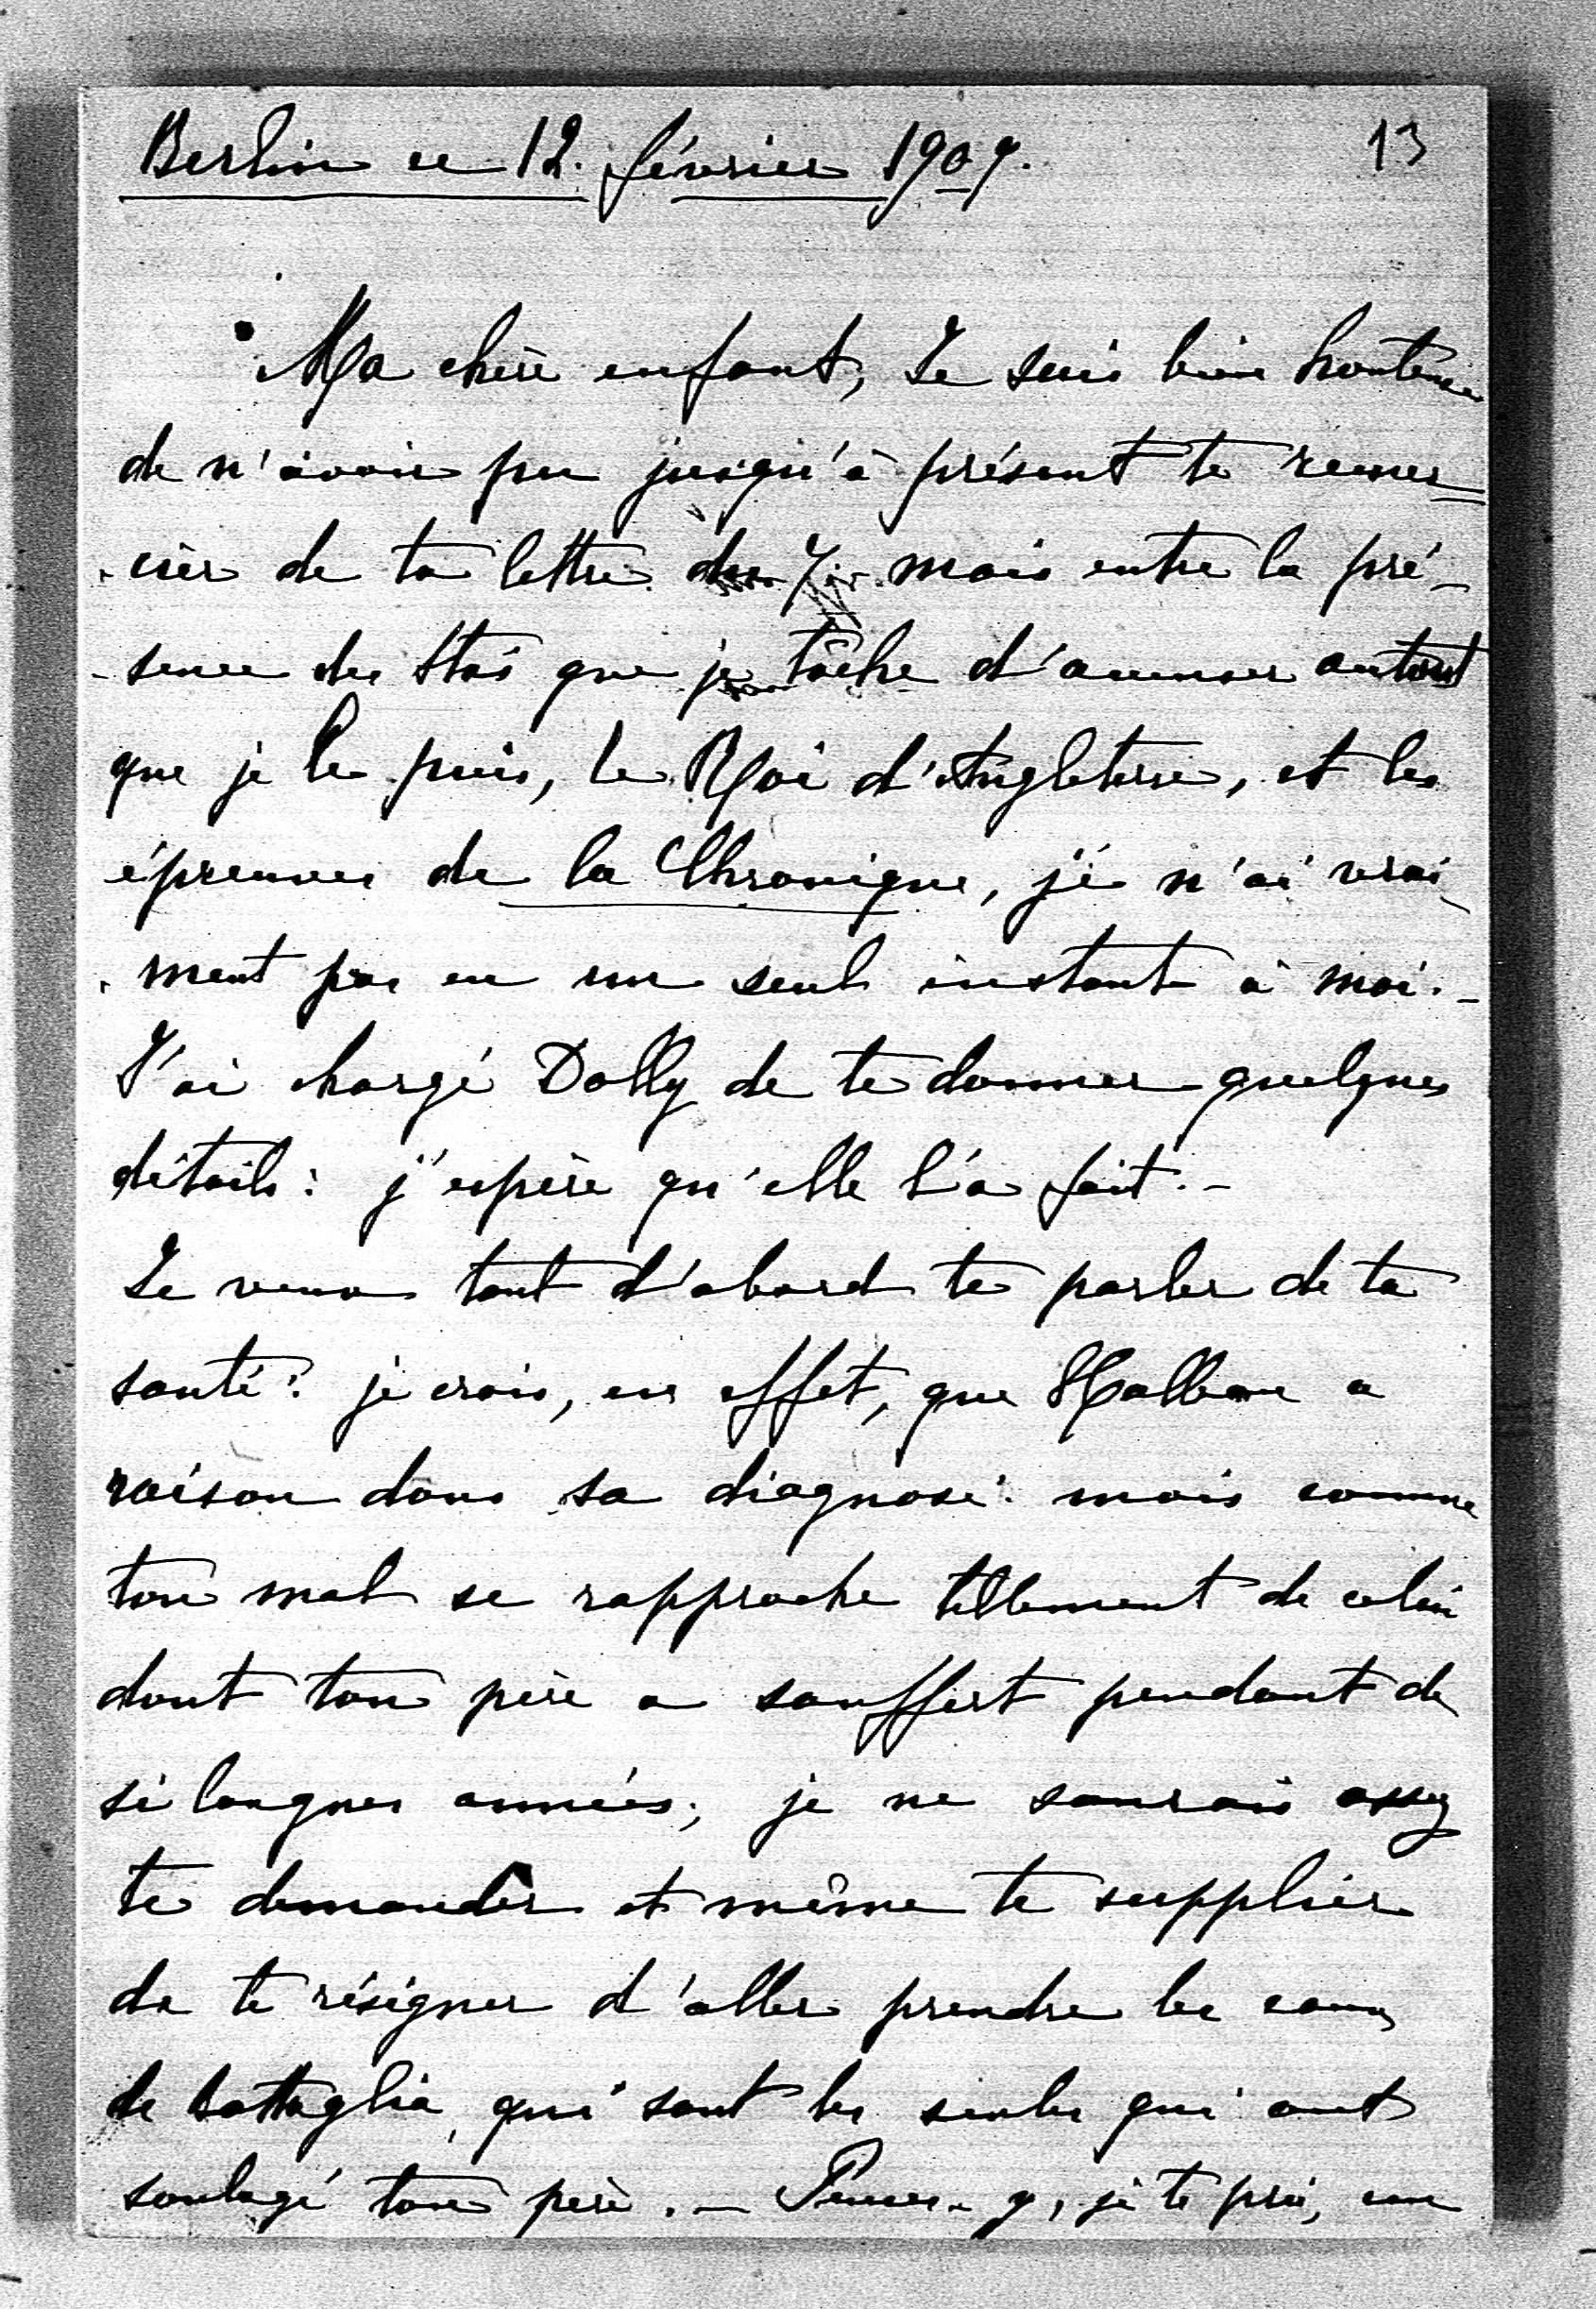 Berlin ce 12. février 1909.
13
Ma chère enfant, Je suis bien honteuse
de n'avoir pu jusqu'à présent te remer-
-cier de ta lettre du 7. mais entre la pré-
-sence des Stas que je tâche d'amuser autant
que je le puis, le Roi d'Angleterre, et les
épreuves de la Chronique, je n'ai vrai-
-ment pas eu un seul instant à moi. -
J'ai chargé Dolly de te donner quelques
détails: j'espère qu'elle l'a fait. -
Je veux tout d'abord te parler de ta
santé: je crois, en effet, que Halban a
raison dans sa diagnose: mais comme
ton mal se rapproche tellement de celui
dont ton père a souffert pendant de
si longues années, je ne saurais assez
te demander et même te supplier
de te résigner d'aller prendre les eaux
de Battaglia, qui sont les seules qui ont
soulagé ton père. - Penses-y, je te prie, car